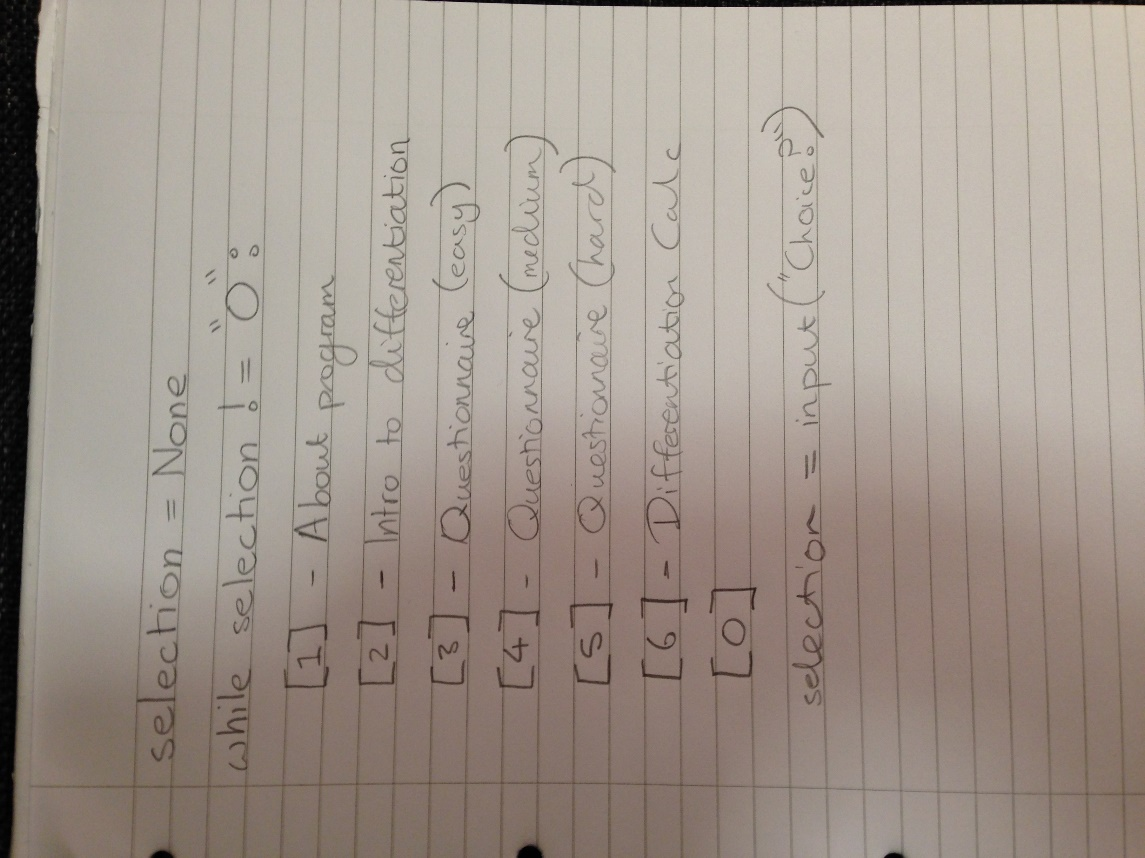 selection = None
while selection != "0":
[1] - About program
[2] - Intro to differentiation
[3] - Questionnaire (easy)
[4] - Questionnaire (medium)
[5] - Questionnaire (hard)
[6] - Differentiation Calc
[0]
selection = input("Choice?")